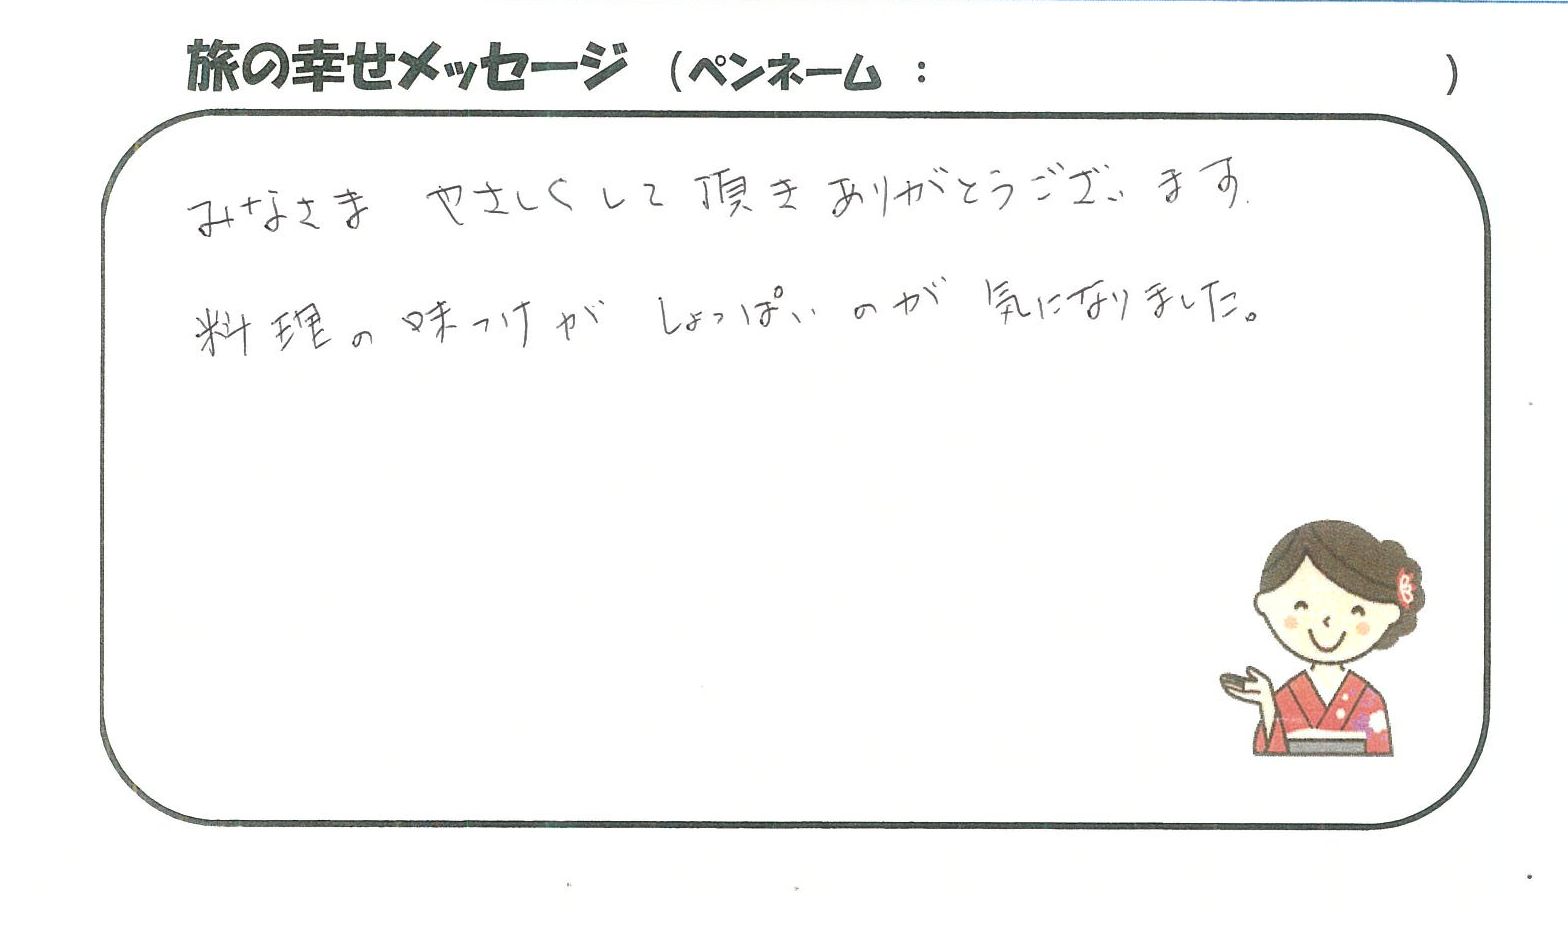 旅の幸せメッセージ (ペンネーム : )
みなさま やさしくして頂きありがとうございます.
料理の味つけが しょっぱいのが 気になりました。